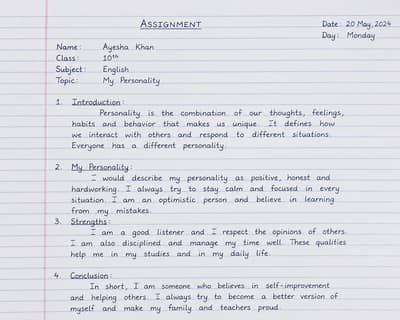 ASSIGNMENT
Date: 20 May, 2024
Day: Monday
Name: Ayesha Khan
Class: 10th
Subject: English
Topic: My Personality
1. Introduction:
Personality is the combination of our thoughts, feelings,
habits and behavior that makes us unique. It defines how
we interact with others and respond to different situations.
Everyone has a different personality.
2. My Personality:
I would describe my personality as positive, honest and
hardworking. I always try to stay calm and focused in every
situation. I am an optimistic person and believe in learning
from my mistakes.
3. Strengths:
I am a good listener and I respect the opinions of others.
I am also disciplined and manage my time well. These qualities
help me in my studies and in my daily life.
4. Conclusion:
In short, I am someone who believes in self-improvement
and helping others. I always try to become a better version of
myself and make my family and teachers proud.